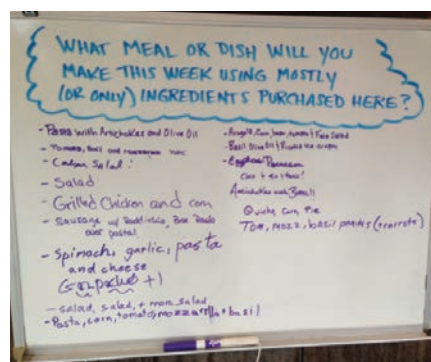 WHAT MEAL OR DISH WILL YOU
MAKE THIS WEEK USING MOSTLY
(OR ONLY) INGREDIENTS PURCHASED HERE?
- Pasta with Artichokes and Olive Oil
- Tomato, Basil and
- Salad
- Grilled Chicken and corn
- Sausage w/
over pasta!
- Spinach, garlic, pasta
and cheese
Gazpacho +1
- salad, salad, + more salad
- Pasta, corn, tomato, mozzarella + basil
- Arugula, Corn, bean, tomato + Feta Salad
- Basil Olive Oil + Ricotta ice cream
- Eggplant Parmesan
Artichokes with Basil
Quiche, corn, pie
Tom, mozz, basil